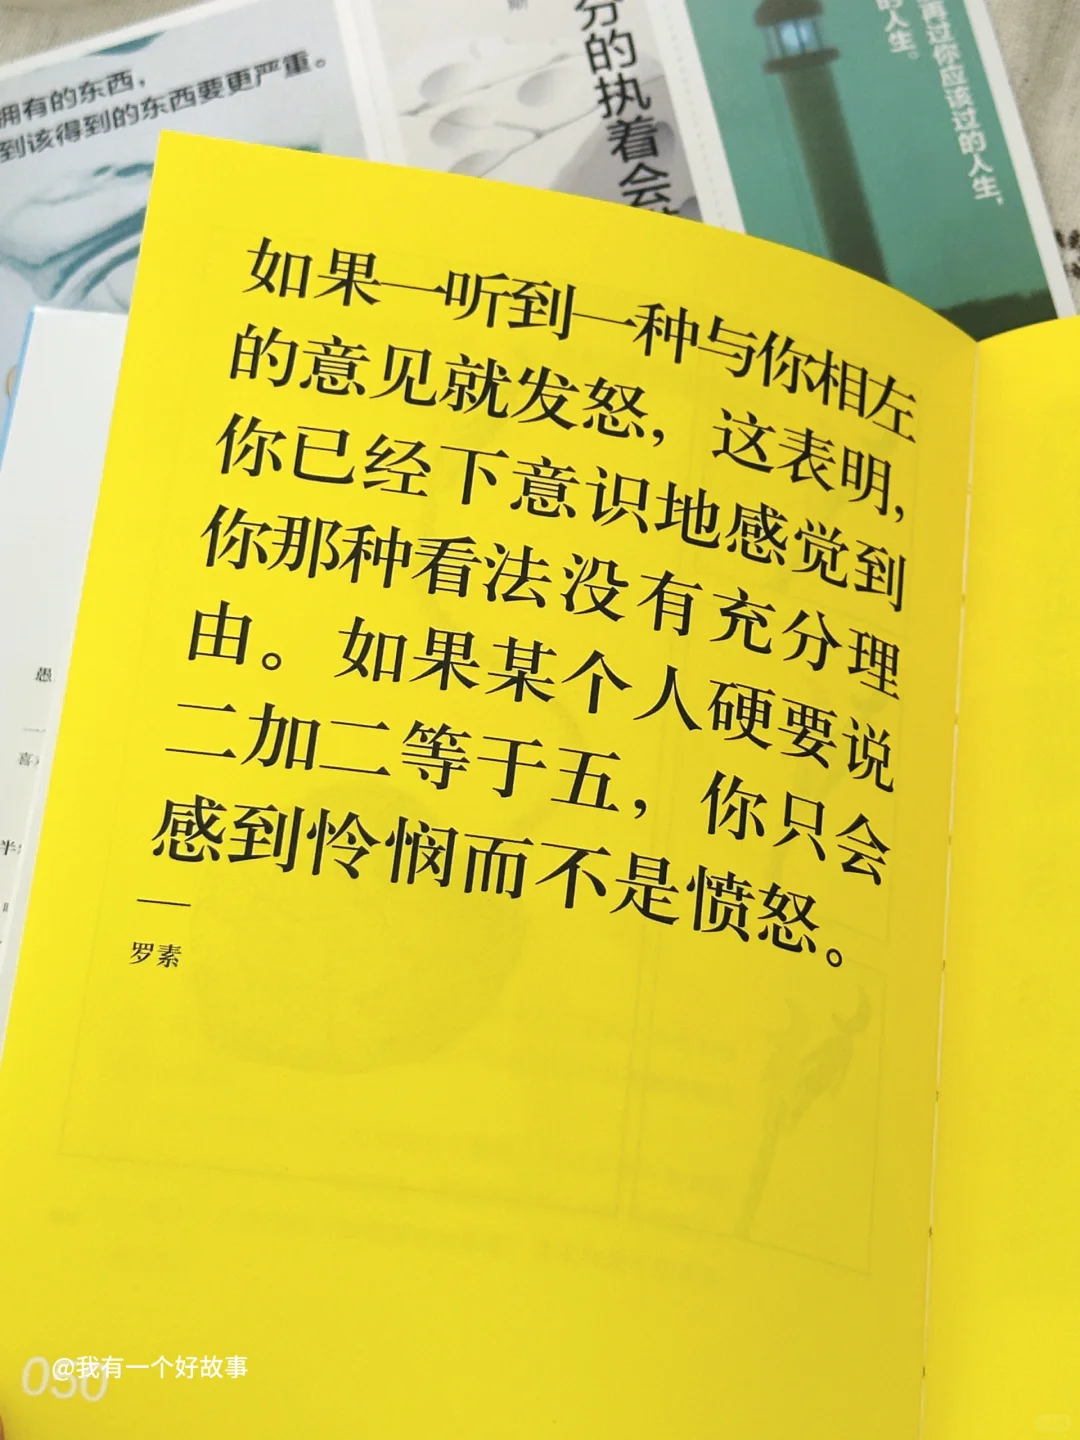 拥有的东西，
到该得到的东西要更严重。
分的执着会
再过你应该过的人生，
的人生。
如果一听到一种与你相左
的意见就发怒，这表明，
你已经下意识地感觉到
你那种看法没有充分理
由。如果某个人硬要说
二加二等于五，你只会
感到怜悯而不是愤怒。
罗素
愚
喜
半
030
@我有一个好故事